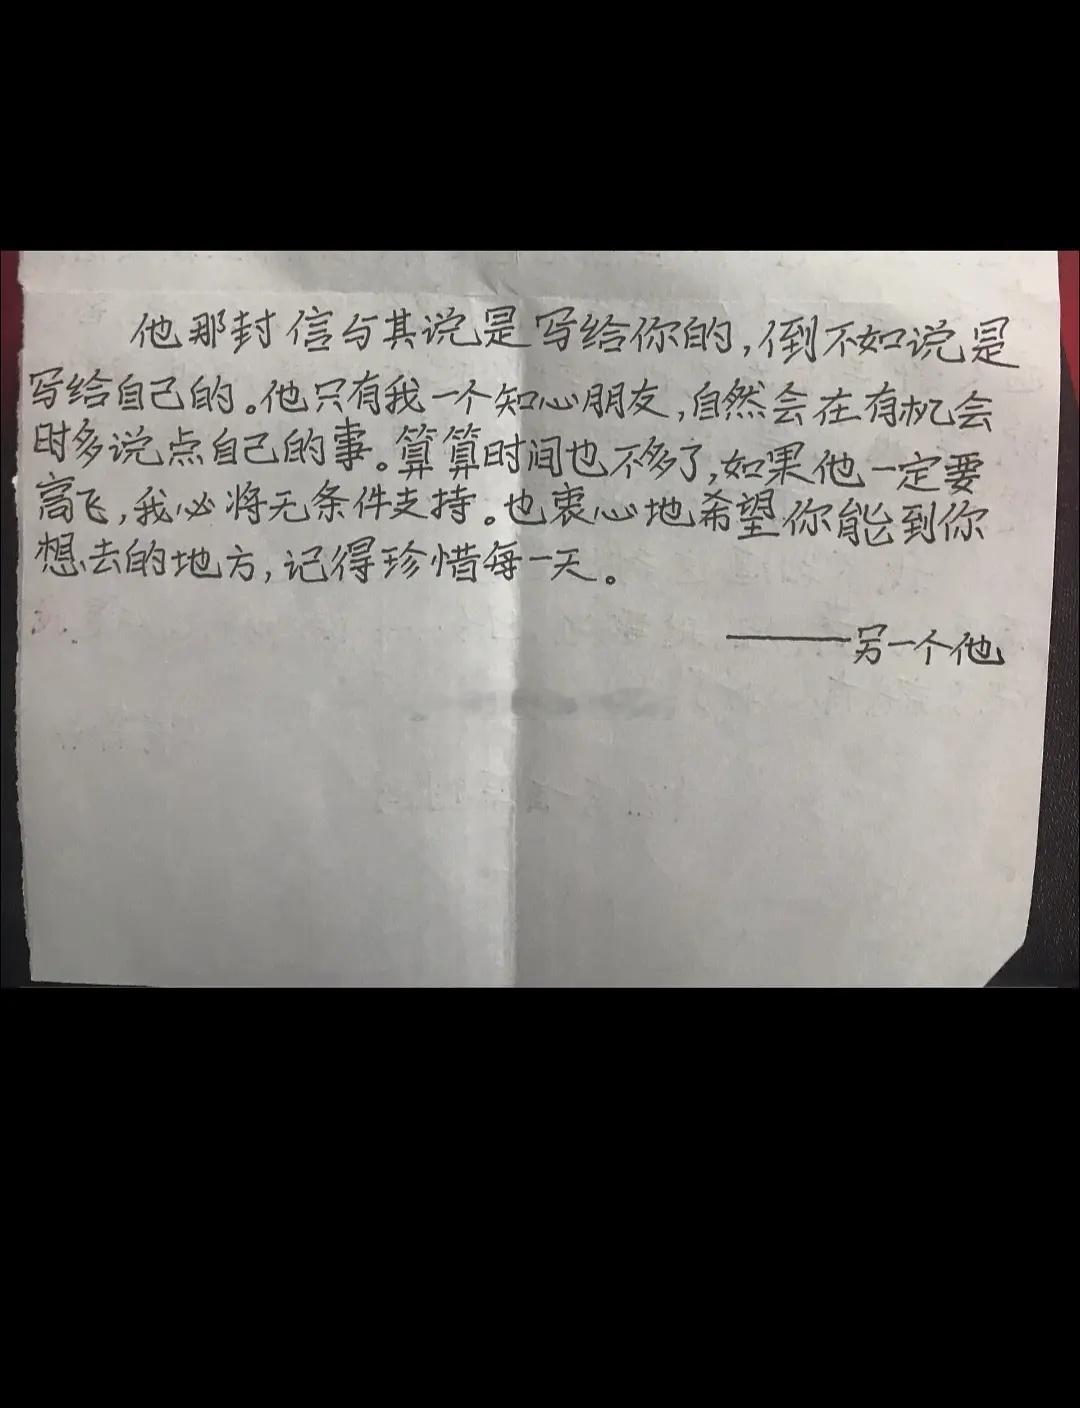 他那封信与其说是写给你的，倒不如说是
写给自己的。他只有我一个知心朋友，自然会在有机会
时多说点自己的事。算算时间也不多了，如果他一定要
高飞，我必将无条件支持。也衷心地希望你能到你
想去的地方，记得珍惜每一天。
——另一个他